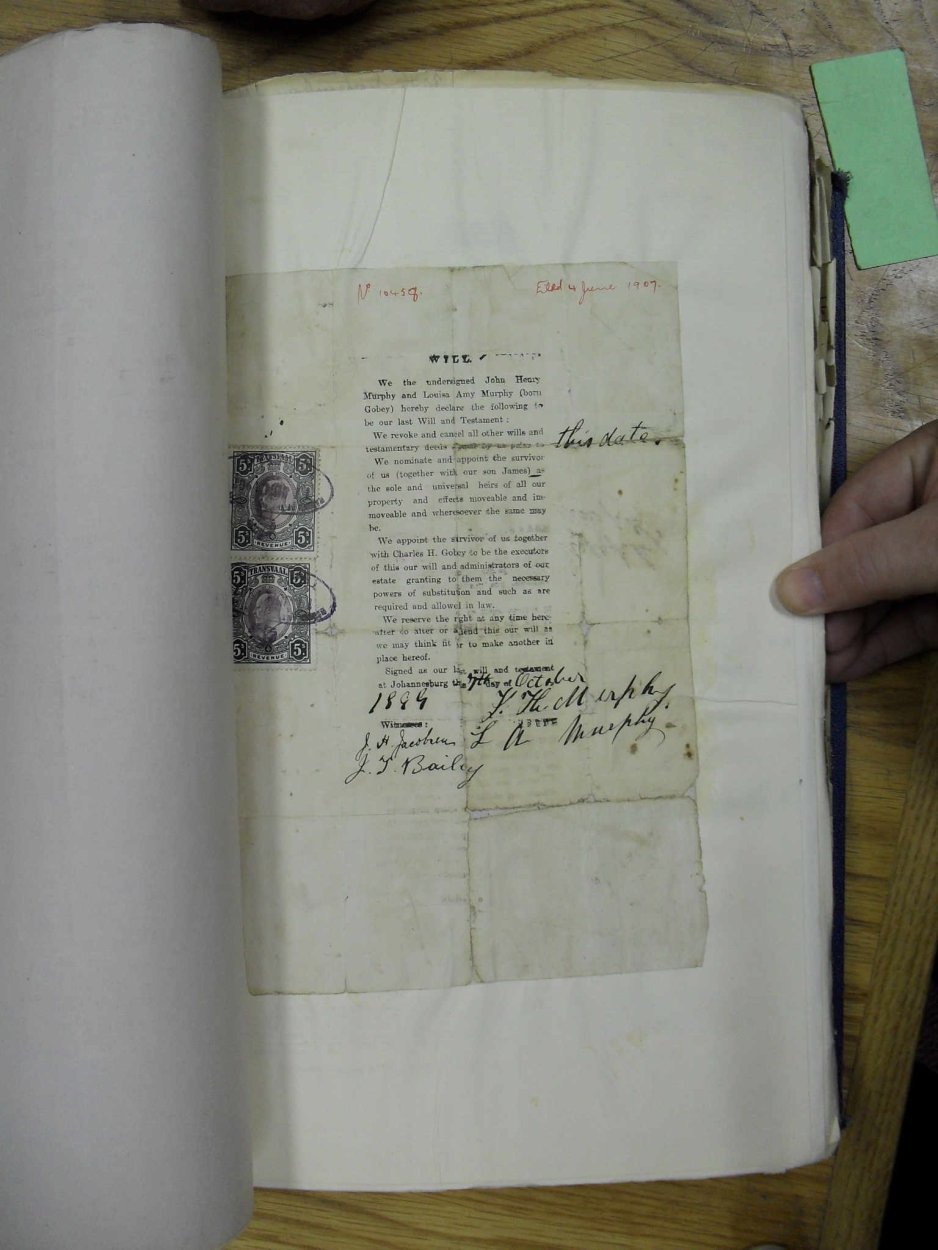 Nº 10458.
Filed 4 June 1907.
WILL
We the undersigned John Henry
Murphy and Louisa Amy Murphy (born
Gobey) hereby declare the following to
be our last Will and Testament :
We revoke and cancel all other wills and
testamentary deeds made by us prior to this date.
We nominate and appoint the survivor
of us (together with our son James) as
the sole and universal heirs of all our
property and effects moveable and im-
moveable and wheresoever the same may
be.
We appoint the survivor of us together
with Charles H. Gobey to be the executors
of this our will and administrators of our
estate granting to them the necessary
powers of substitution and such as are
required and allowed in law.
We reserve the right at any time here-
after to alter or amend this our will as
we may think fit or to make another in
place hereof.
Signed as our last will and testament
at Johannesburg this 7th day of October
1899
J. H. Murphy.
Witnesses :
J. H Jacobsen L A Murphy.
J. T. Bailey
5/ TRANSVAAL 5/
5/ REVENUE 5/
5/ TRANSVAAL 5/
5/ REVENUE 5/